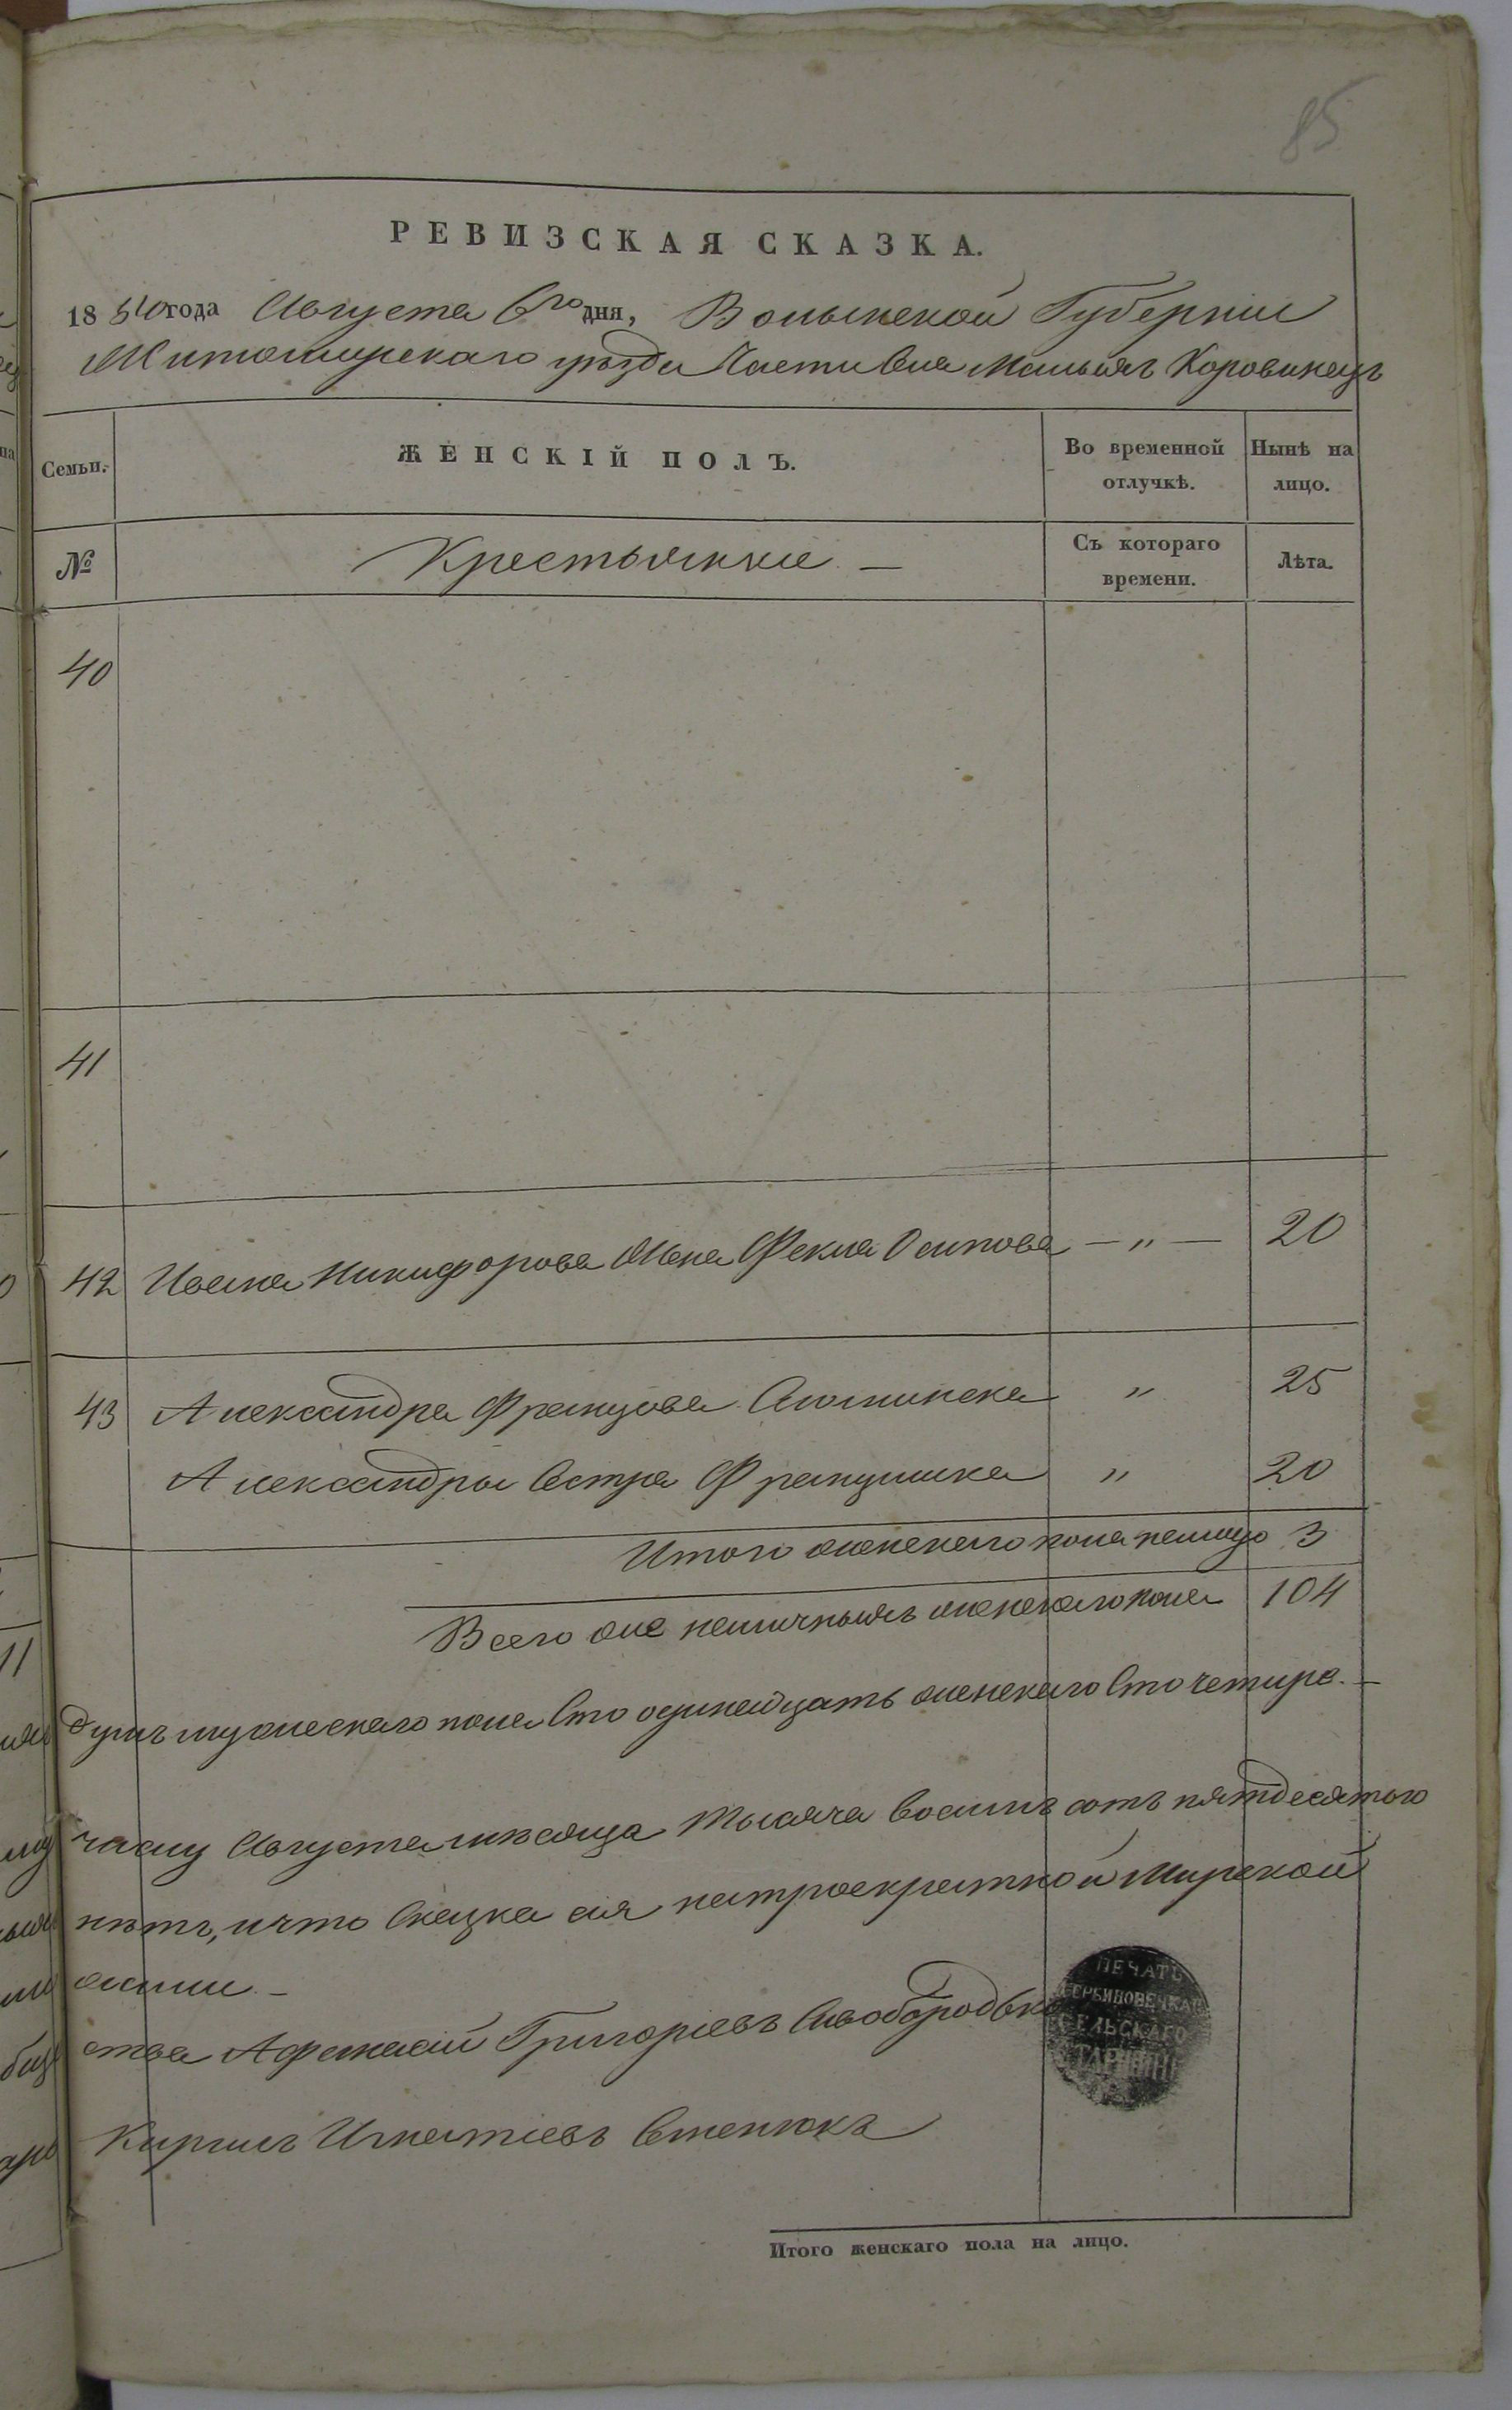 85
РЕВИЗСКАЯ СКАЗКА.
1850 года Августа 6го дня, Волынской Губернии
Житомирскаго уезда Части села Малыхъ Коровинецъ
Семьи. ЖЕНСКІЙ ПОЛЪ. Во временной отлучкѣ. Нынѣ на лицо.
№ Крестьянка — Съ котораго времени. Лѣта.
40
41
42 Ивана Никифорова жена Фекла Осипова — „ — 20
43 Александра Францова „ 25
Александры Сестра Францишка „ 20
Итого женскаго пола налицо 3
Всего же наличныхъ женскаго пола 104
душъ мужескаго пола Сто одинадцать женскаго Сто четыре. —
числу Августа мѣсяца Тысяча восимъ сотъ пятдесятого
нѣтъ, и что Сказка сія на троекратной Мирской
—
ства Афанасій Григоріевъ Сивобородько
ПЕЧАТЬ
СЕЛЬСКАГО
СТАРШИНЫ
Кирилъ Игнатіевъ Степюкъ
Итого женскаго пола на лицо.